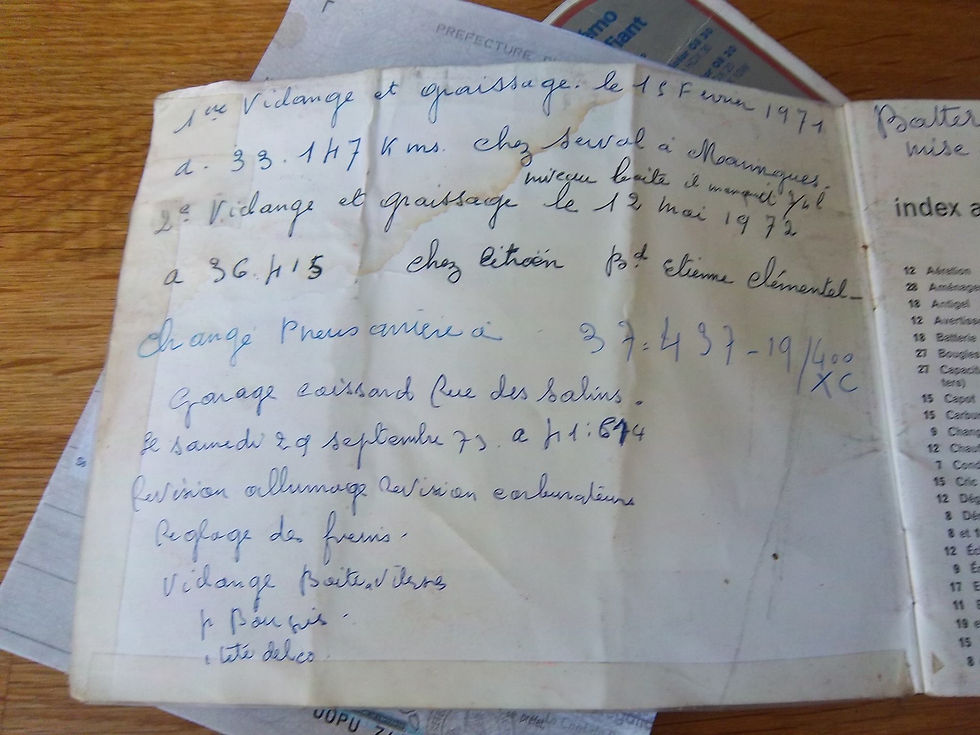 PREFECTURE
1ère Vidange et graissage. le 15 Fevrier 1971
a. 33.147 Kms. chez Serval à Maringues.
niveau boite il manquait 3/4 l
2e Vidange et graissage le 12 mai 1972
a 36.415 chez Citroën Bd Etienne Clémentel_
Changé Pneus arrière à 37.437-19/400
XC
Garage caissard Rue des Salins.
le samedi 29 septembre 73. a 41.614
Revision allumage Revision carburateur
Reglage des freins.
Vidange Boite.vitesses
4 Bougies.
1 tête delco.
Batter
mise
index a
12 Aération
28 Aménage
18 Antigel
12 Avertiss
18 Batterie
27 Bougies
27 Capacit
ters)
15 Capot
15 Carbur
9 Chang
12 Chauf
7 Cons
15 Cric
12 Dép
8 Dé
8 et 1
12 Éc
9 É
17 E
11
19 e
15
8